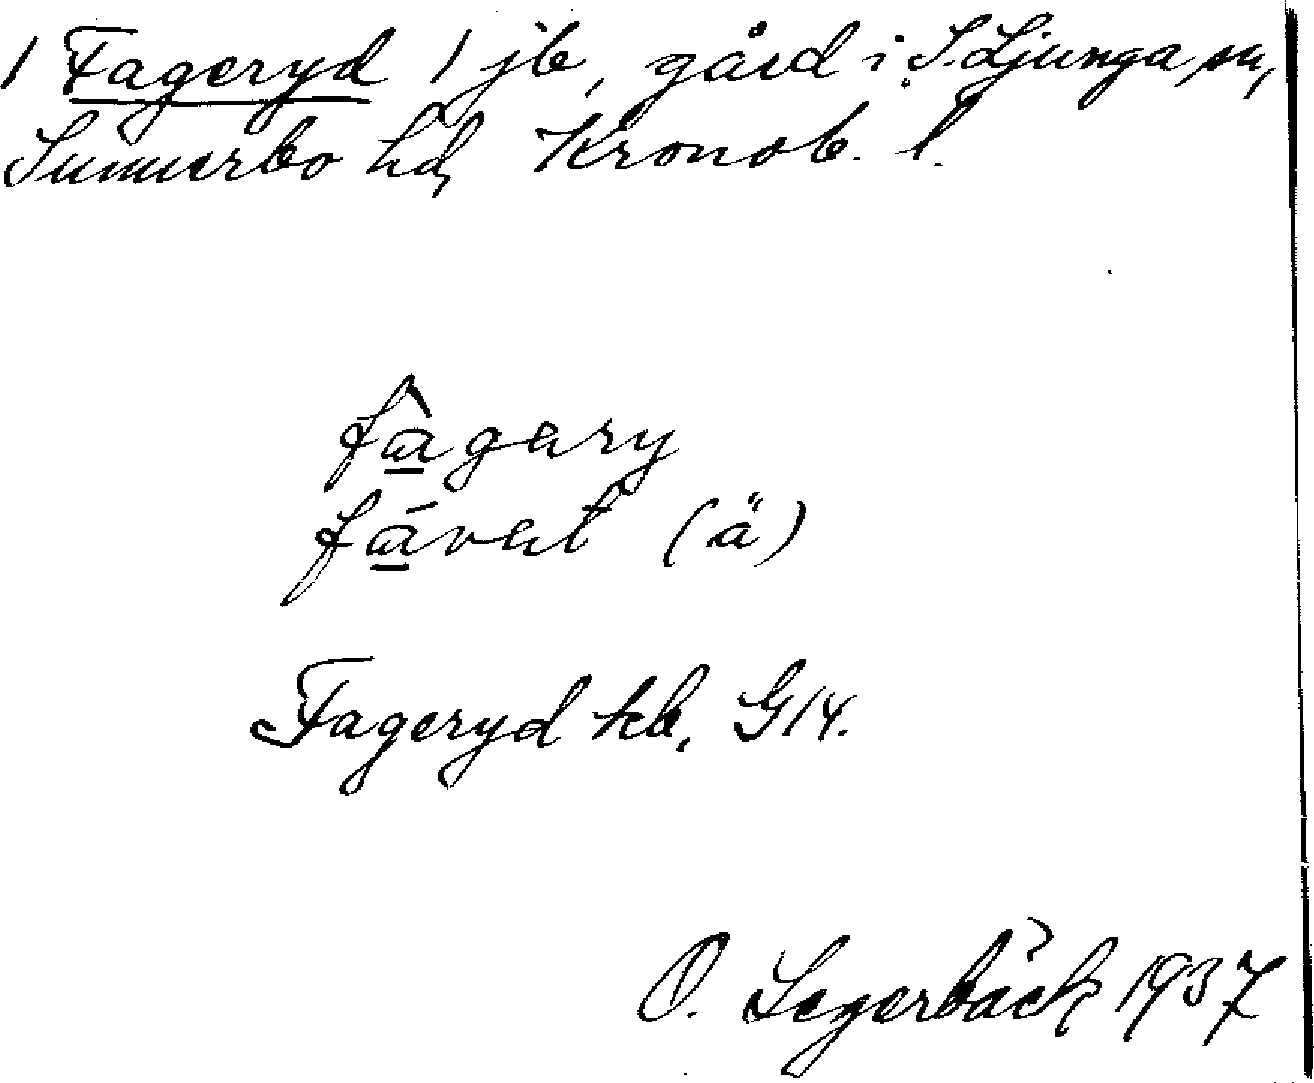 1 Fageryd 1 jb, gård i S. Ljunga sn,
Sunnerbo hd, Kronob. l.
fâgary
fávat (ä)
Fageryd kb, G14.
O. Segerbäck 1937